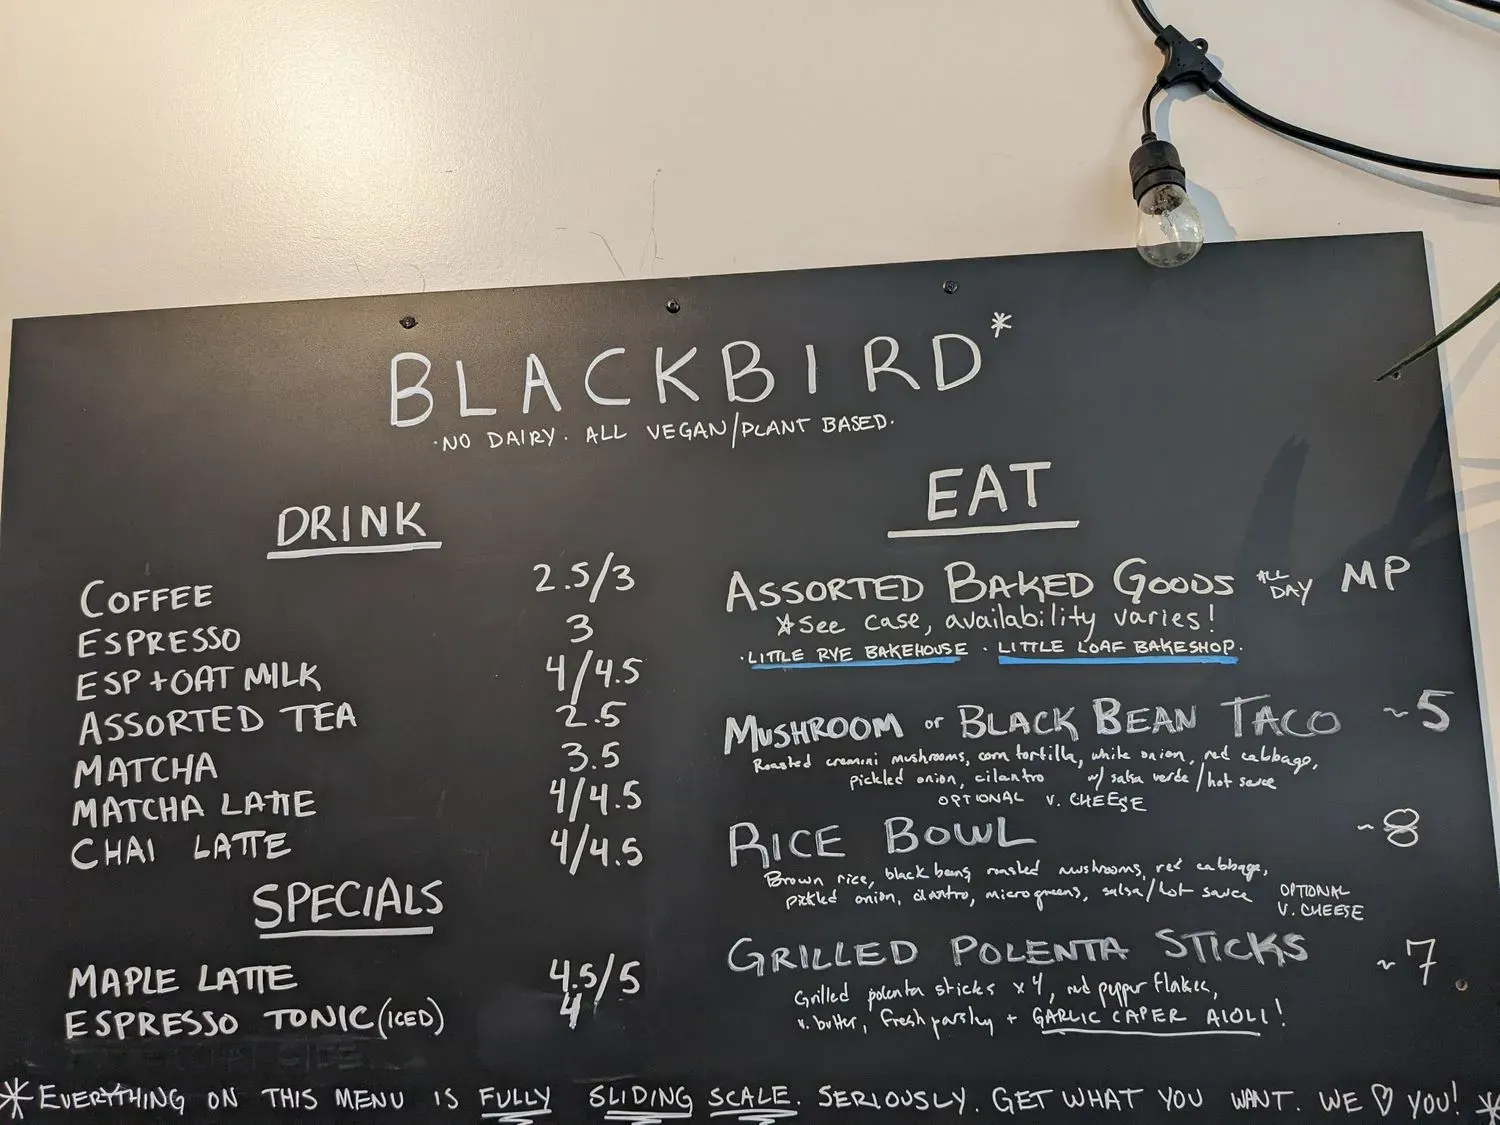 BLACKBIRD*
·NO DAIRY. ALL VEGAN/PLANT BASED.
DRINK
COFFEE 2.5/3
ESPRESSO 3
ESP+OAT MILK 4/4.5
ASSORTED TEA 2.5
MATCHA 3.5
MATCHA LATTE 4/4.5
CHAI LATTE 4/4.5
SPECIALS
MAPLE LATTE 4.5/5
ESPRESSO TONIC (ICED) 4
EAT
ASSORTED BAKED GOODS ALL DAY MP
*See case, availability varies!
·LITTLE RYE BAKEHOUSE · LITTLE LOAF BAKESHOP.
MUSHROOM or BLACK BEAN TACO ~5
Roasted cremini mushrooms, corn tortilla, white onion, red cabbage,
pickled onion, cilantro w/ salsa verde/hot sauce
OPTIONAL V. CHEESE
RICE BOWL ~8
Brown rice, black beans, roasted mushrooms, red cabbage,
pickled onion, cilantro, microgreens, salsa/hot sauce
OPTIONAL
V. CHEESE
GRILLED POLENTA STICKS ~7
Grilled polenta sticks x 4, red pepper flakes,
v. butter, fresh parsley + GARLIC CAPER AIOLI!
*EVERYTHING ON THIS MENU IS FULLY SLIDING SCALE. SERIOUSLY. GET WHAT YOU WANT. WE ♡ YOU! *